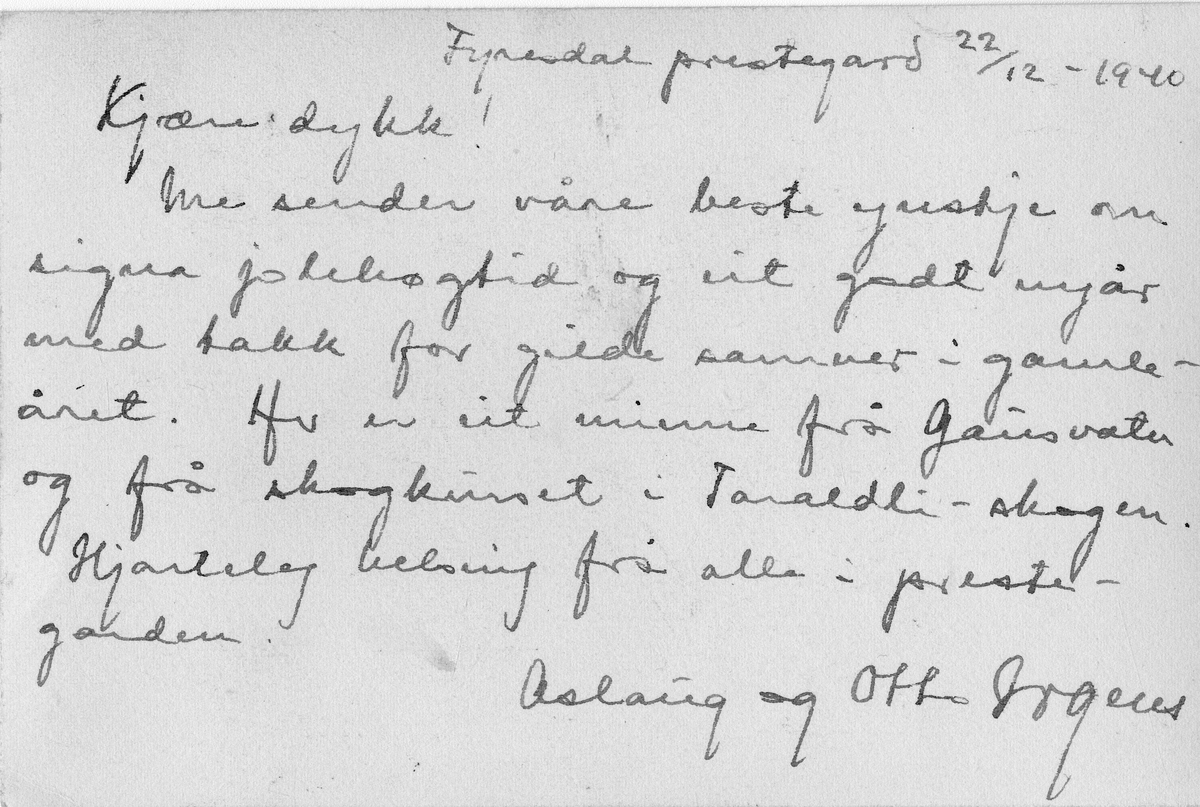 Fyresdal prestegard 22/12 - 1940
Kjære dykk!
Me sender våre beste ynskje om
signa jolehøgtid og eit godt nyår
med takk for gilde samver i gamle-
året. Her er eit minne frå Gausvatn
og frå skogkurset i Taraldli-skogen.
Hjarteleg helsing frå alle i preste-
garden.
Aslaug og Otto Irgens